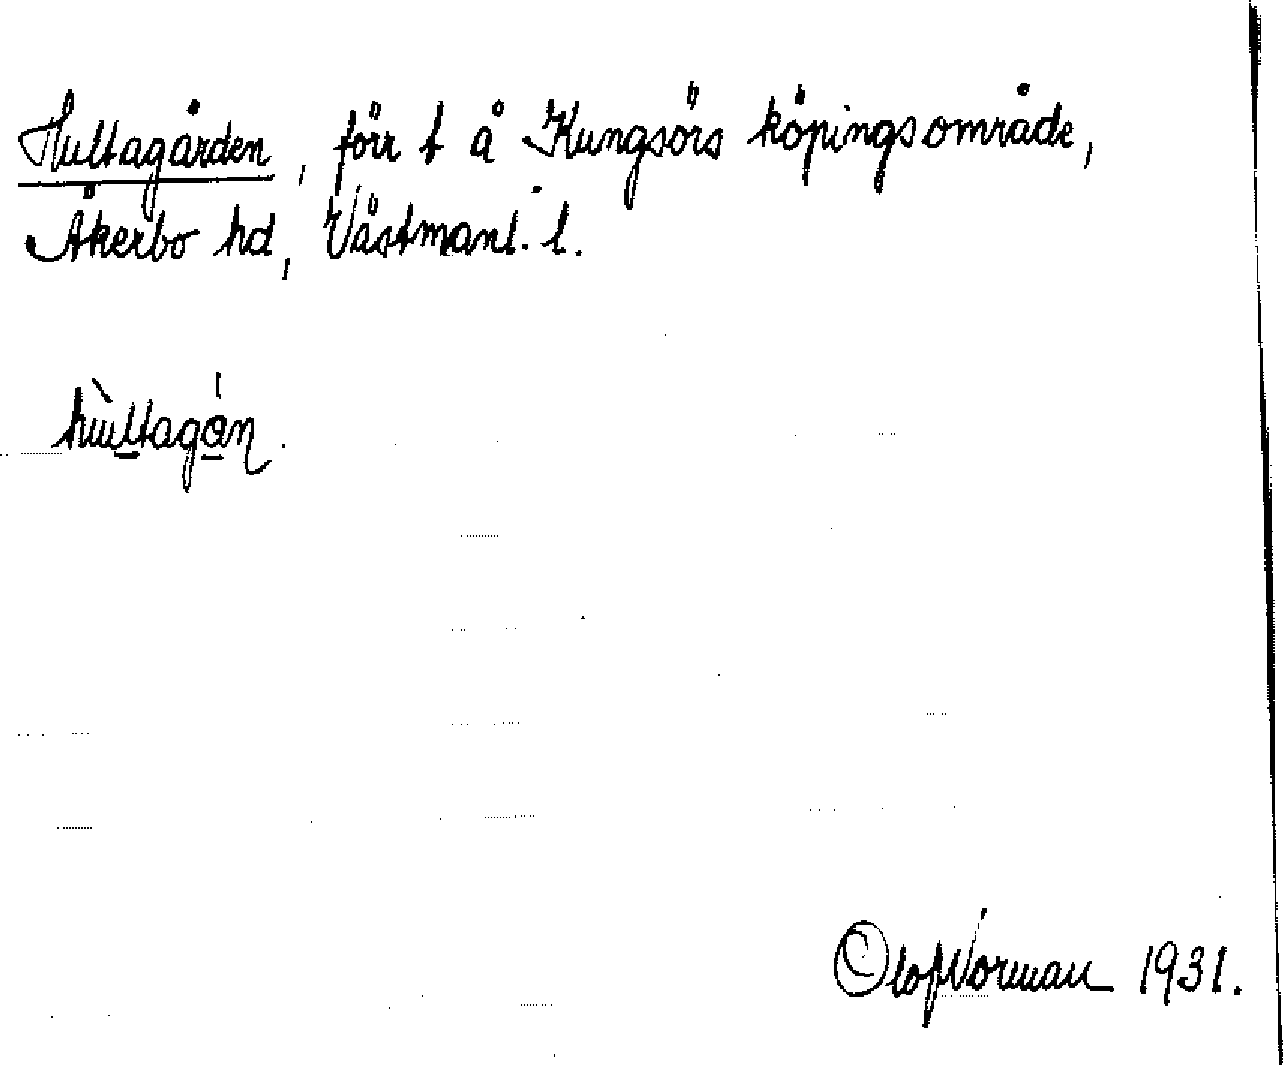 Hultagården, förr t å Kungsörs köpingsområde,
Åkerbo hd, Västmanl. l.
hùltagán.
Olof Norman 1931.